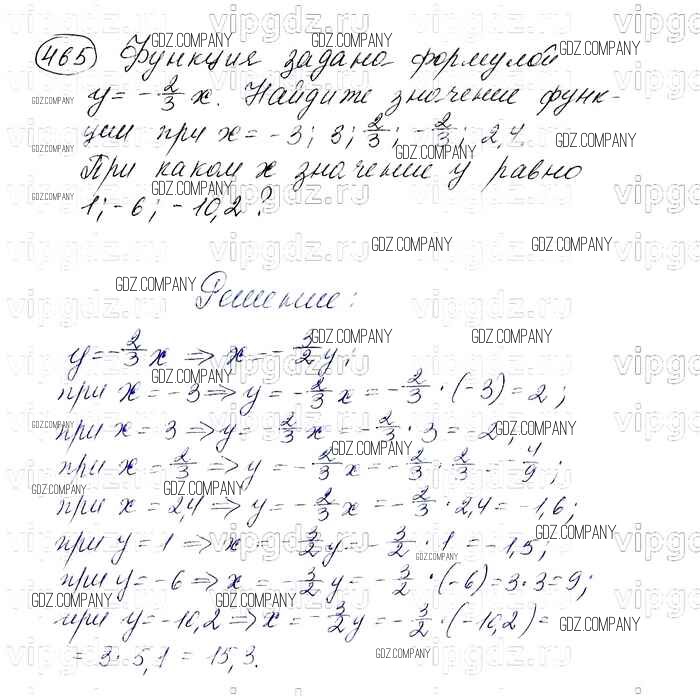 465 Функция задана формулой
y = -2/3 x. Найдите значение функ-
ции при x = -3; 3; 2/3; -2/3; 2,4.
При каком x значение y равно
1; -6; -10,2?
Решение:
y = -2/3 x ⇒ x = -3/2 y;
при x = -3 ⇒ y = -2/3 x = -2/3 · (-3) = 2;
при x = 3 ⇒ y = -2/3 x = -2/3 · 3 = -2;
при x = 2/3 ⇒ y = -2/3 x = -2/3 · 2/3 = -4/9;
при x = 2,4 ⇒ y = -2/3 x = -2/3 · 2,4 = -1,6;
при y = 1 ⇒ x = -3/2 y = -3/2 · 1 = -1,5;
при y = -6 ⇒ x = -3/2 y = -3/2 · (-6) = 3·3 = 9;
при y = -10,2 ⇒ x = -3/2 y = -3/2 · (-10,2) =
= 3 · 5,1 = 15,3.
GDZ.COMPANY
vipgdz.ru